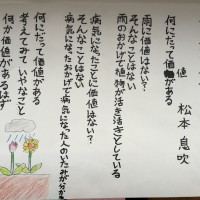 値 松本 息吹
何にだって価値がある
雨に価値はない?
そんなことはない
雨のおかげで植物が活き活きとしている
病気になったことに価値はない?
そんなことはない
病気になったおかげで病気になった人のいたみが分かる
何にだって価値がある
考えてみて いやなこと
何か価値があるはず